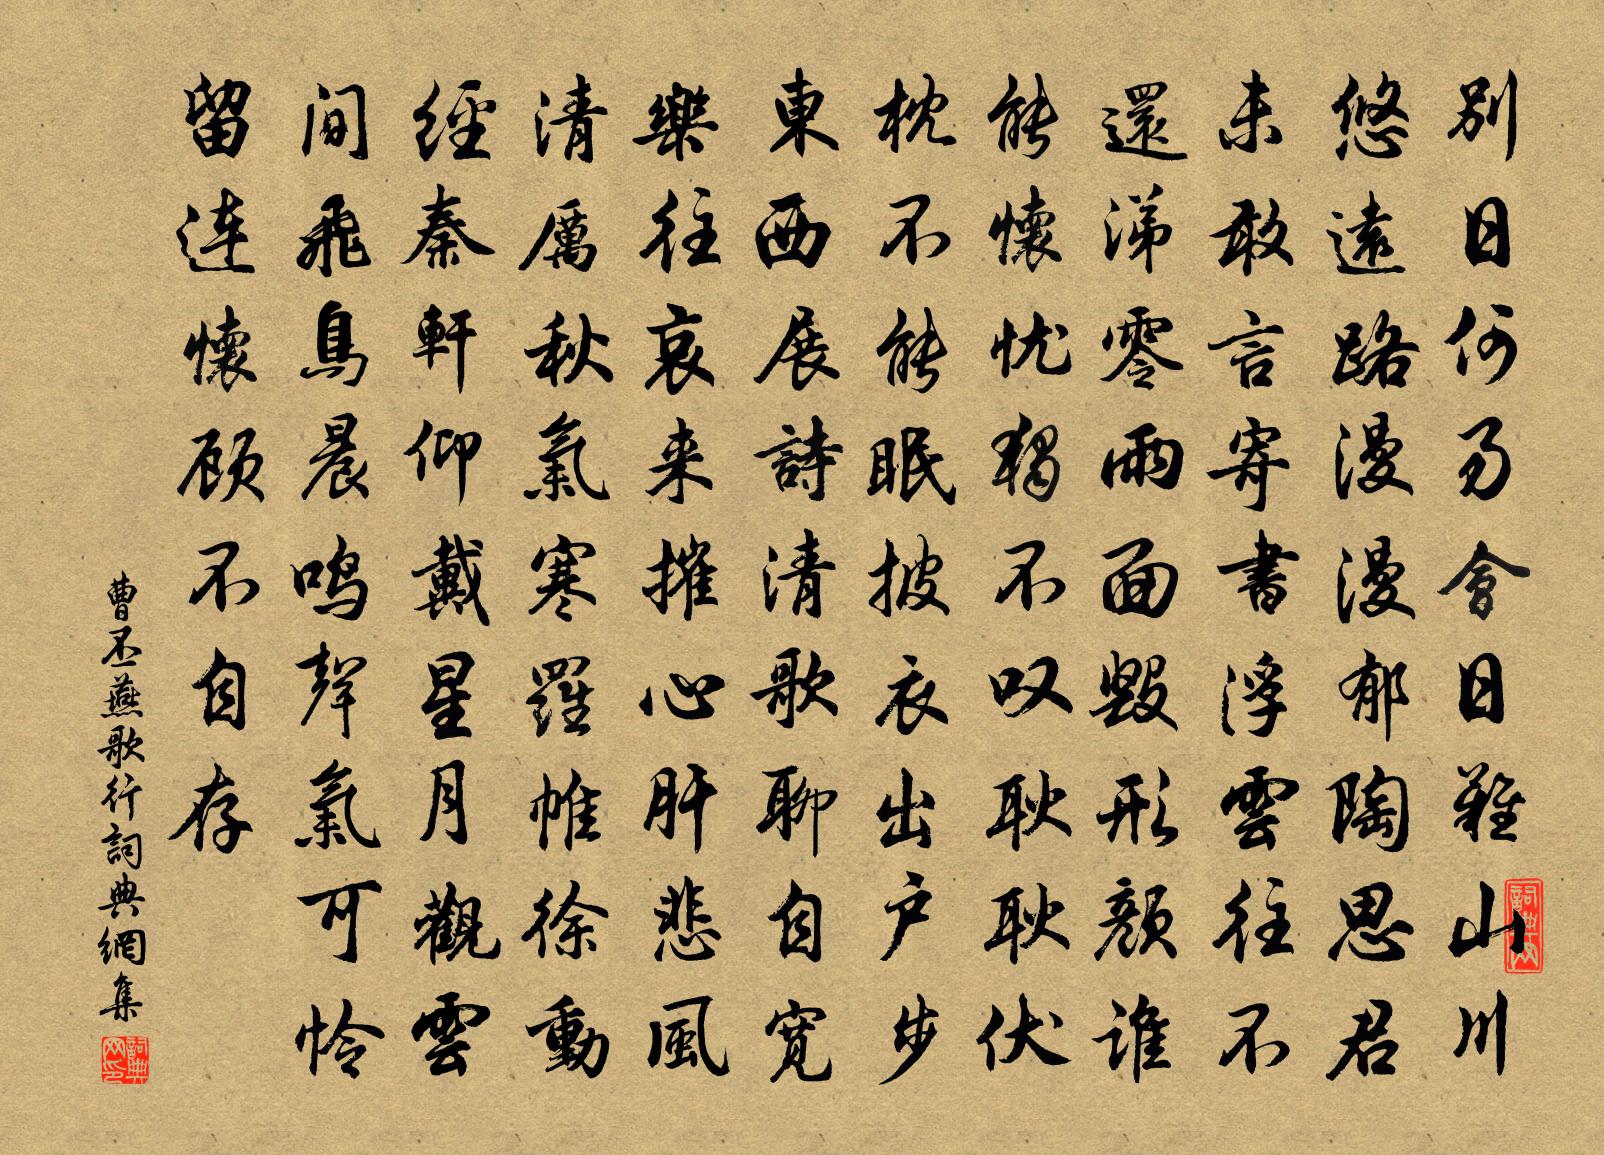 别日何易會日難山川
悠遠路漫漫郁陶思君
未敢言寄書浮雲往不
還涕零雨面毁形顔谁
能懷忧獨不叹耿耿伏
枕不能眠披衣出户步
東西展詩清歌聊自宽
樂往哀来摧心肝悲風
清厲秋氣寒羅帷徐動
經秦軒仰戴星月觀雲
间飛鳥晨鸣聲氣可怜
留连懷顾不自存
曹丕燕歌行詞典網集
詞典网
詞典网印